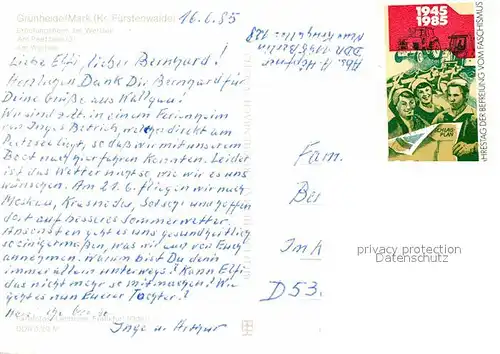 Grünheide/Mark (Kr. Fürstenwalde)
16.6.85
Liebe Elfi, lieber Bernhard!
Herzlichen Dank Dir Bernhard für
Deine Grüße aus
Wir sind z.Zt. in einem Ferienheim
von Inges Betrieb, welches direkt am
Peetzsee liegt, so daß wir mit unserem
Boot nach hier fahren konnten. Leider
ist das Wetter nicht so, wie wir es uns
wünschen. Am 21.6. fliegen wir nach
Moskau, Krasnodar, Sotschi und hoffen
dort auf besseres Sommerwetter.
Ansonsten geht es uns gesundheitlich
so einigermaßen, was wir auch von Euch
annehmen. Warum bist Du denn
immer allein unterwegs? Kann Elfi
das nicht mehr so mitmachen? Wie
geht es nun Eurer Tochter?
Inge u. Arthur
Abs. A.
DDR Berlin
Fam.
Be
Im A
D 53.
1945
1985
JAHRESTAG DER BEFREIUNG VOM FASCHISMUS
PLAN
privacy protection
Datenschutz